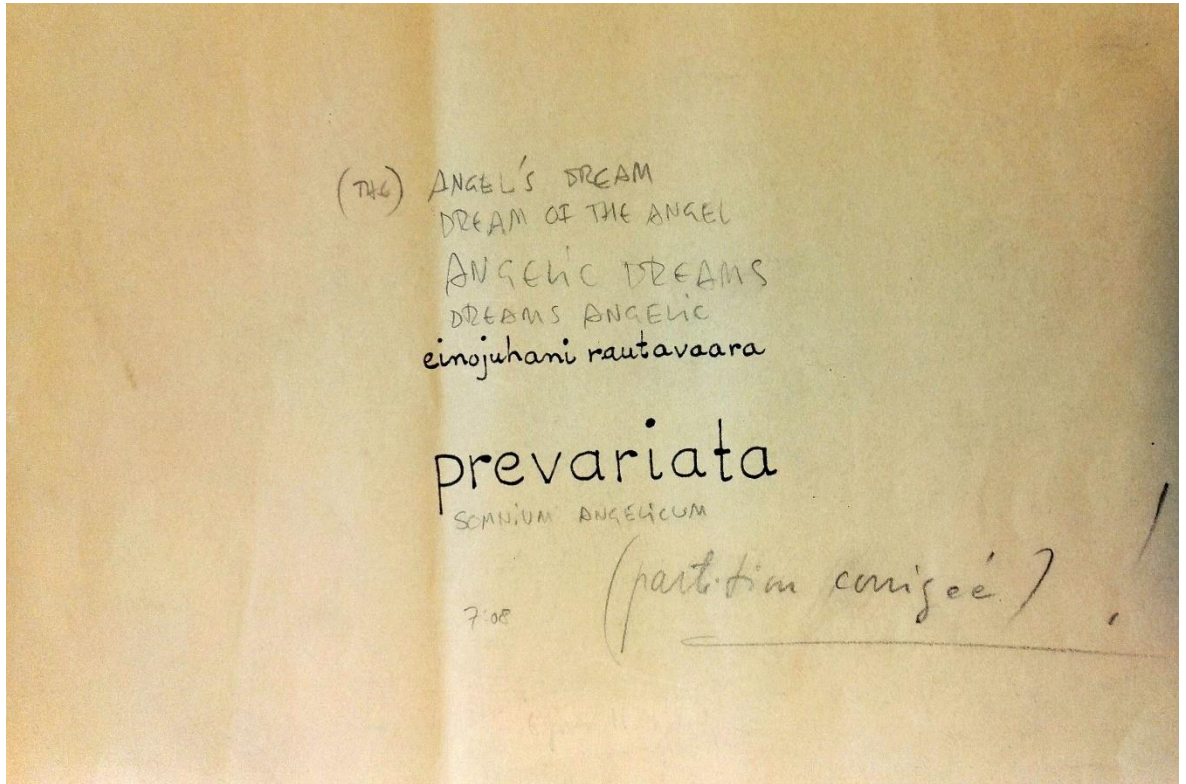 (THE) ANGEL'S DREAM
DREAM OF THE ANGEL
ANGELIC DREAMS
DREAMS ANGELIC
einojuhani rautavaara
prevariata
SOMNIUM ANGELICUM
(partition corrigeé) !
7:08